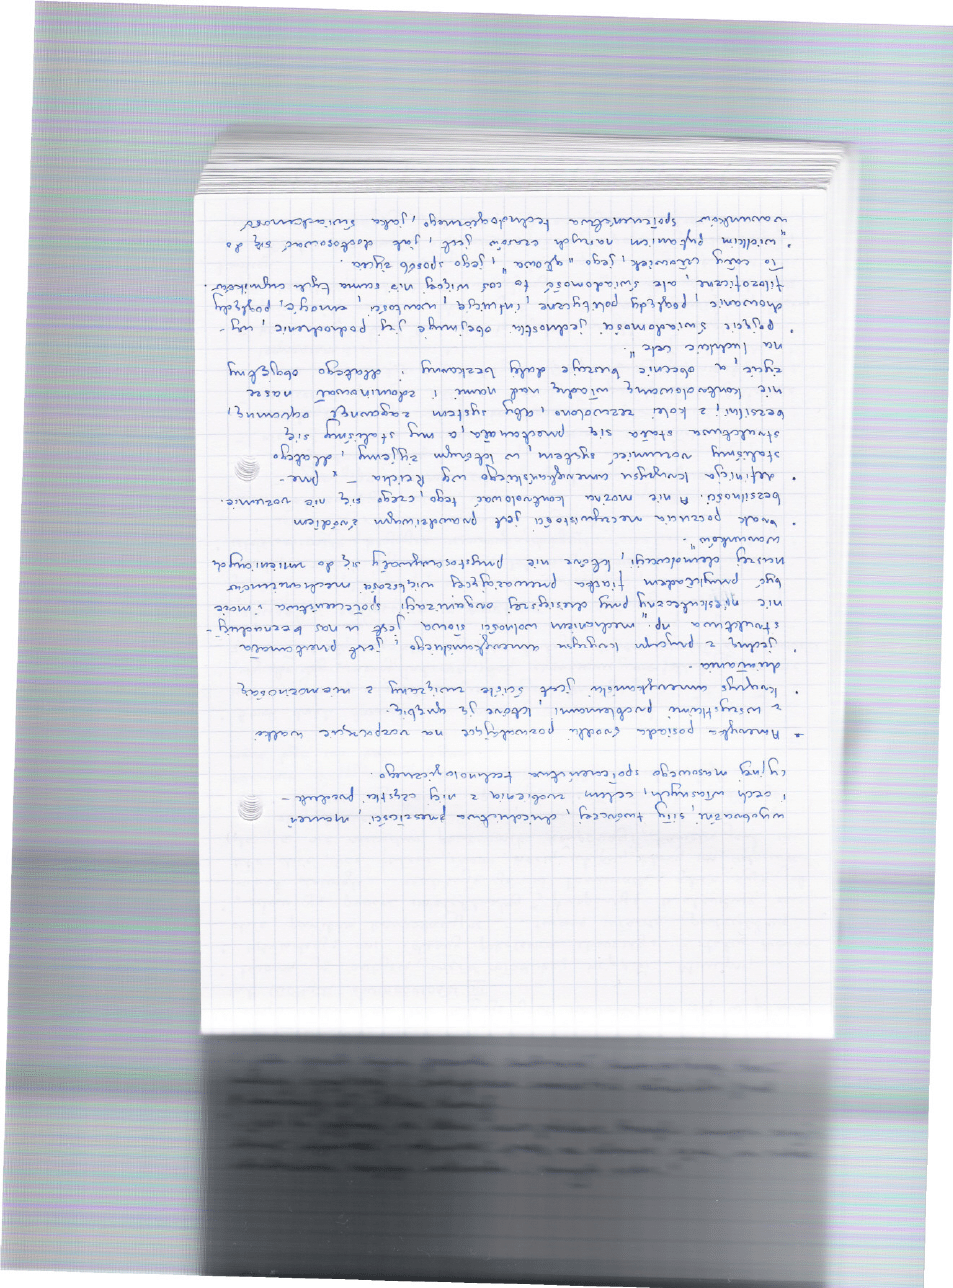 wyobraźni, siły twórczej, dziedzictwa przeszłości, marzeń
i cech własnych, celem zrobienia z niej części produk-
cyjnej masowego społeczeństwa technologicznego.
* Ameryka posiada środki pozwalające na rozpoczęcie walki
z wszystkimi problemami, które ją gnębią.
• kryzys amerykański jest ściśle związany z niemożnością
działania.
• jedną z przyczyn kryzysu amerykańskiego, jest przestarzała
struktura np. "mechanizm wolności słowa jest u nas beznadziej-
nie nieskuteczny przy dzisiejszej organizacji społeczeństwa i może
być przykładem fiaska przeważającej większości mechanizmów
naszej demokracji, które nie przystosowywały się do zmienionych
warunków".
• brak poczucia rzeczywistości jest prawdziwym źródłem
bezsilności. A nie można kontrolować tego, czego się nie rozumie.
• definicja kryzysu amerykańskiego wg Reicha – "prze-
staliśmy rozumieć system, w którym żyjemy, dlatego
struktura stała się przestarzała, a my staliśmy się
bezsilni; z kolei zezwolono, aby system zagarnął ogromną,
nie kontrolowaną władzę nad nami i zdominował nasze
życie, a obecnie dalej bezkarny i dlatego obojętny
na ludzkie cele".
• Pojęcie świadomości jednostki obejmuje jej pochodzenie, wy-
chowanie, poglądy polityczne, intuicję, wartości, emocje, poglądy
filozoficzne, ale świadomość to coś więcej niż suma tych czynników.
To cały człowiek, jego "głowa", jego sposób życia.
• "wielkim pytaniem naszych czasów jest, jak dostosować się do
warunków społeczeństwa technologicznego, jaka świadomość